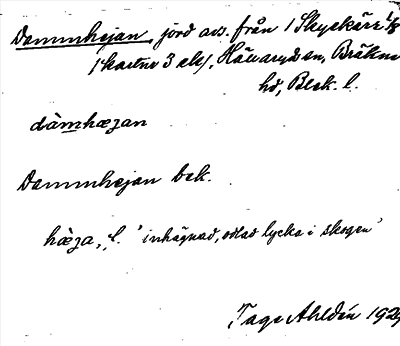 Dammhejan, jord avs. från 1 Skyekärr 1/8
(kartnr 3 ek), Hällaryds sn, Bräkne
hd, Blek. l.
dàmhæjan
Dammhejan bek.
hæja, f. 'inhägnad, odlad lycka i skogen'
Tage Ahldén 192